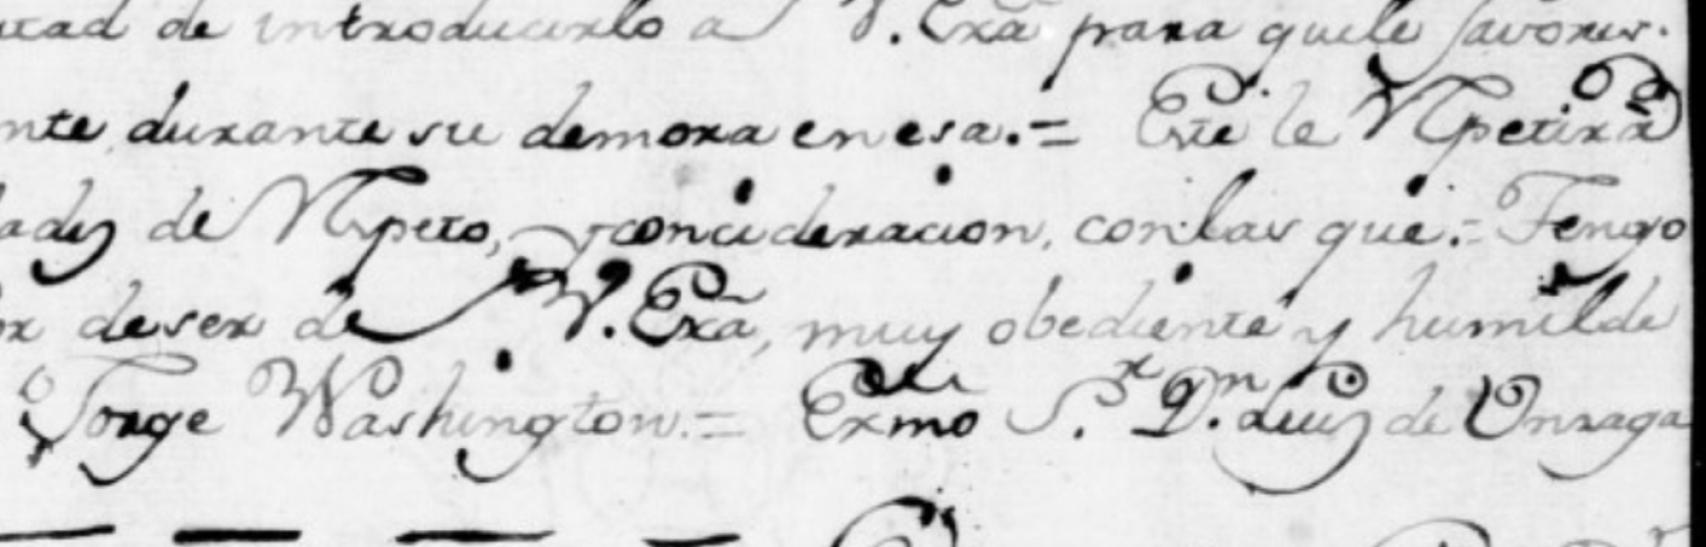 de introducirlo a V. Exã para quele favores.
nte durante su demora en esa.= Este le Rpetirà
lades de Rpeto, y concideracion, con las que.= Tengo
or de ser de V. Exã, muy obediente y humilde
Jorge Washington.= Exmo S.r D.n Luis de Unzaga